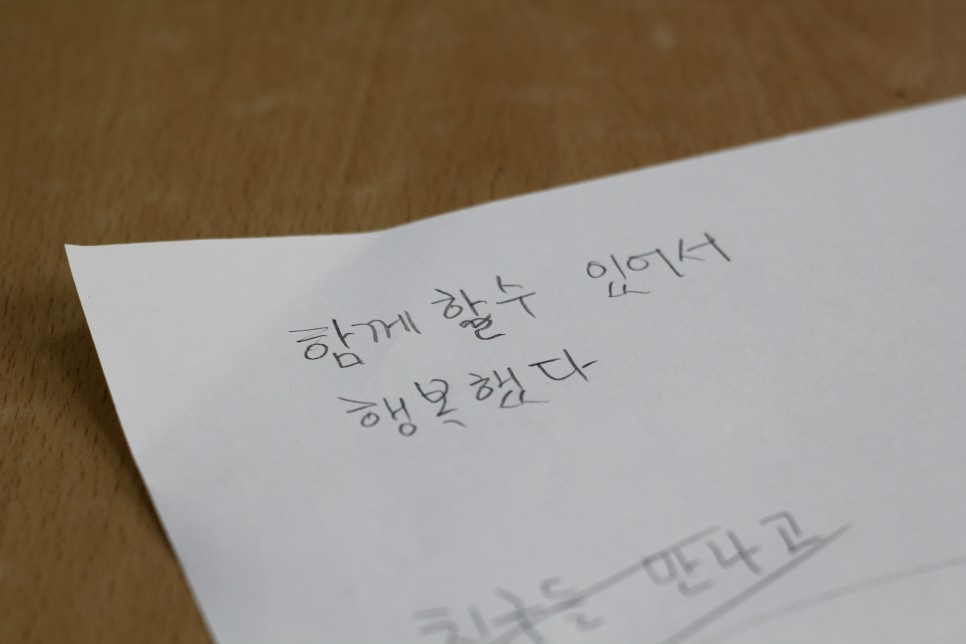 함께 할수 있어서
행복했다
친구들 만나고